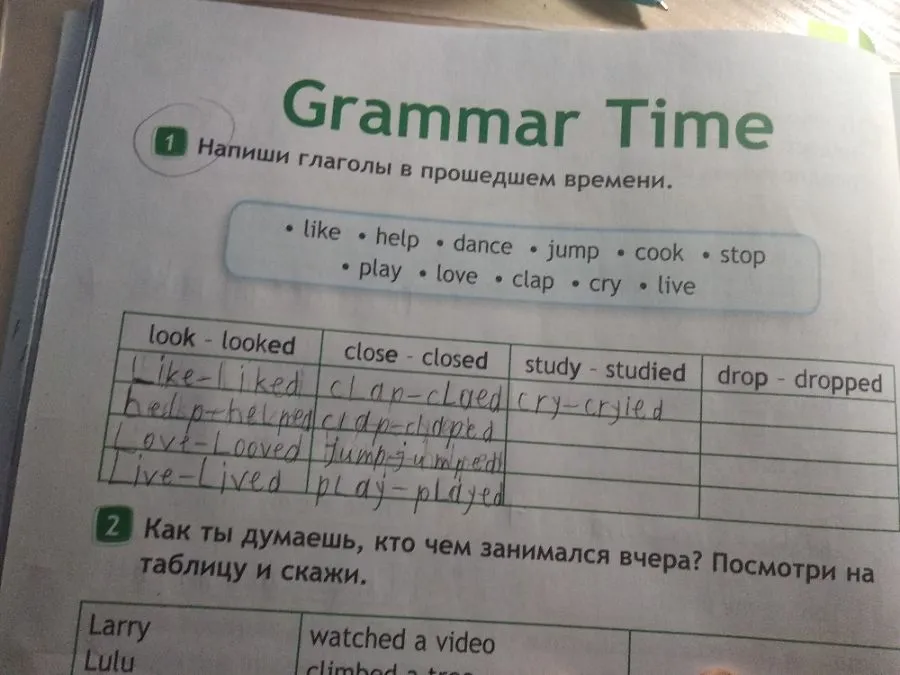 Grammar Time
1 Напиши глаголы в прошедшем времени.
• like • help • dance • jump • cook • stop
• play • love • clap • cry • live
look - looked close - closed study - studied drop - dropped
Like-Liked cLap-cLaed cry-cryied
hedp-helped clap-claped
Love-Looved jump-jumped
Live-Lived pLay-pLayed
2 Как ты думаешь, кто чем занимался вчера? Посмотри на
таблицу и скажи.
Larry watched a video
Lulu climbed a tree